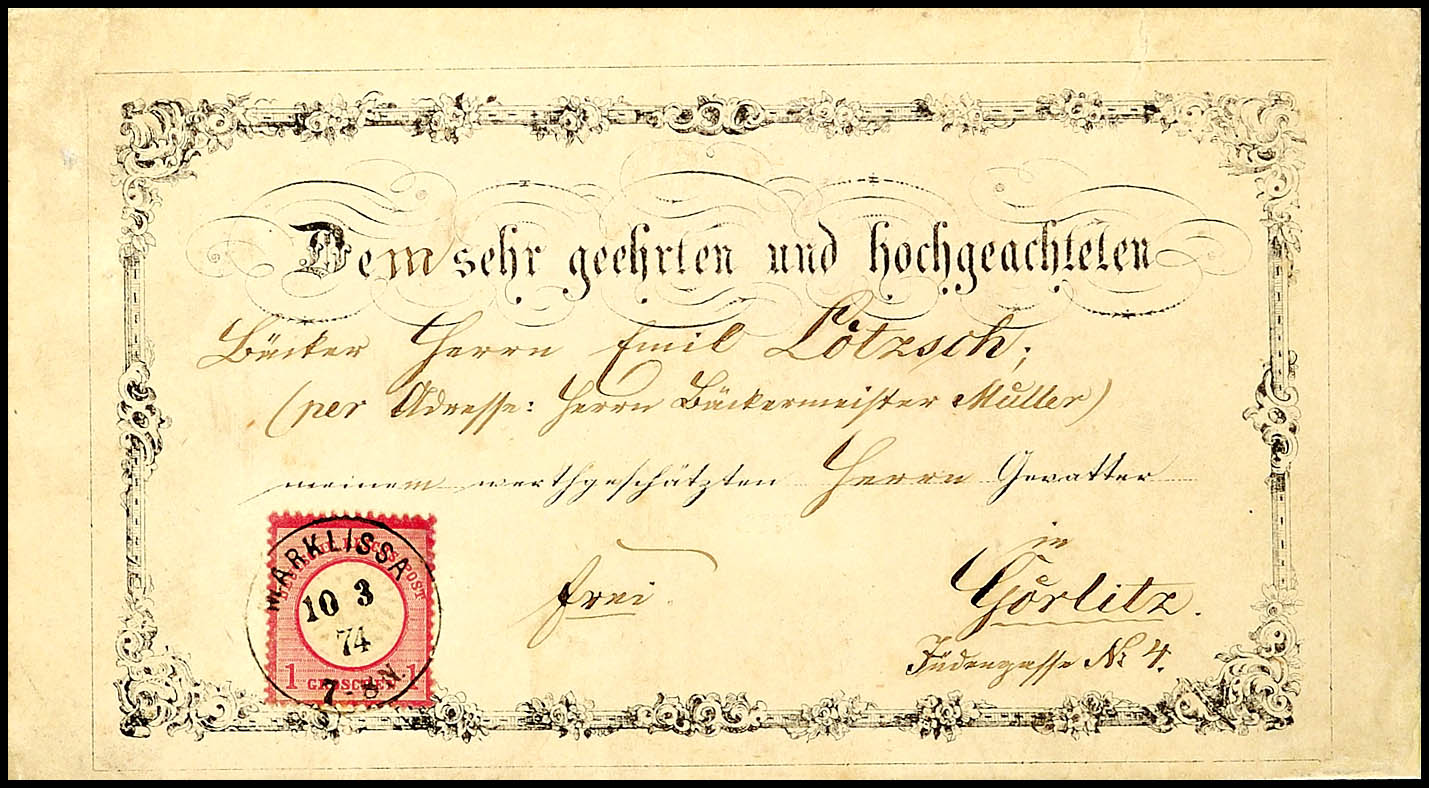 Dem sehr geehrten und hochgeachteten
Bäcker Herrn Emil Lötzsch,
(per Adresse: Herrn Bäckermeister Müller)
meinem werthgeschätzten Herrn Gevatter
in
frei. Görlitz.
Jüdengasse No 4.
MARKLISSA
10 3
74
7-8N
DEUTSCHE REICHS-POST
1 GROSCHEN 1